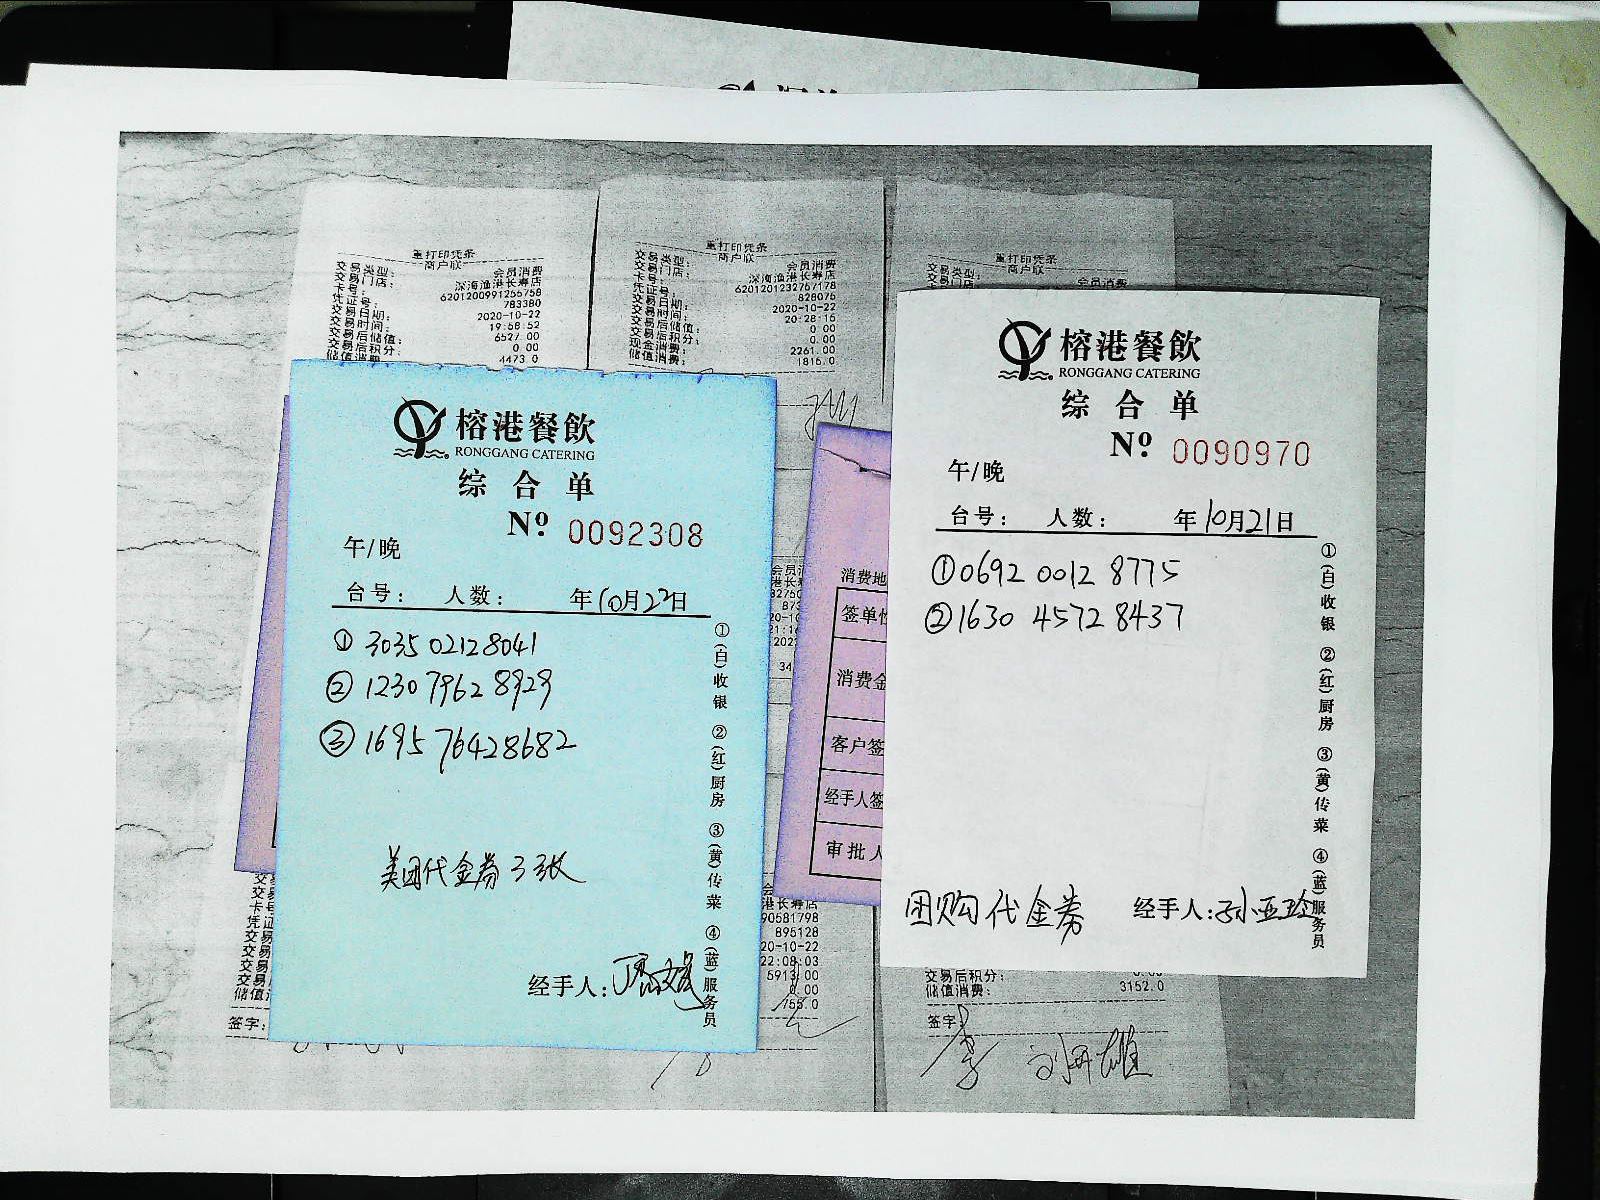 重打印凭条
商户联
交易类型: 会员消费
交易门店: 深海渔港长寿店
卡号: 6201200991255758
凭证号: 783380
交易日期: 2020-10-22
交易时间: 19:58:52
交易后储值: 6527.00
交易后积分: 0.00
储值消费: 4473.0
重打印凭条
商户联
交易类型: 会员消费
交易门店: 深海渔港长寿店
卡号: 6201201232757178
凭证号: 828076
交易日期: 2020-10-22
交易时间: 20:28:16
交易后储值: 0.00
交易后积分: 0.00
现金消费: 2261.00
储值消费: 1816.0
重打印凭条
商户联
交易类型: 会员消费
交易门店:
榕港餐飲
RONGGANG CATERING
综合单
Nº 0092308
午/晚
台号: 人数: 年10月22日
① 3035 02128041
② 1230 7962 8929
③ 1695 76428682
美团代金券3张
经手人:
①(白)收银 ②(红)厨房 ③(黄)传菜 ④(蓝)服务员
消费地
签单
消费金
客户签
经手人签
审批人
榕港餐飲
RONGGANG CATERING
综合单
Nº 0090970
午/晚
台号: 人数: 年10月21日
①0692 0012 8775
②1630 4572 8437
团购代金券 经手人:孙亚玲
①(白)收银 ②(红)厨房 ③(黄)传菜 ④(蓝)服务员
签字:
港长寿店
90581798
895128
20-10-22
22:08:03
5913.00
0.00
交易后积分: 0.00
储值消费: 3152.0
签字